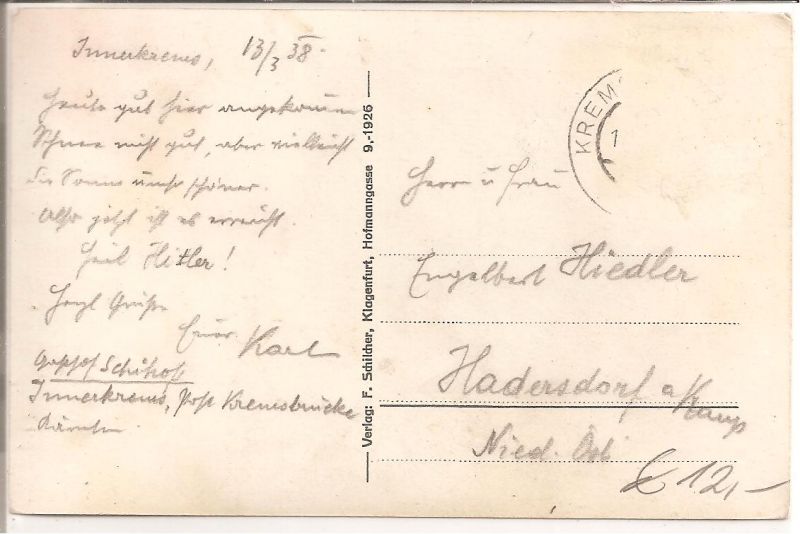 Innerkrems, 13/3 38.
Heute gut hier angekommen
Schnee nicht gut, aber vielleicht
die Sonne umso schöner.
Also jetzt ist es erreicht.
Heil Hitler!
Herzl Grüße
Euer Karl
Gasthof Schihof
Innerkrems, Post Kremsbrücke
Kärnten
Verlag: F. Schilcher, Klagenfurt, Hofmanngasse 9,-1926
KREMS
1
Herrn u Frau
Engelbert Hiedler
Hadersdorf a/Kamp
Nied. Öst
12,-